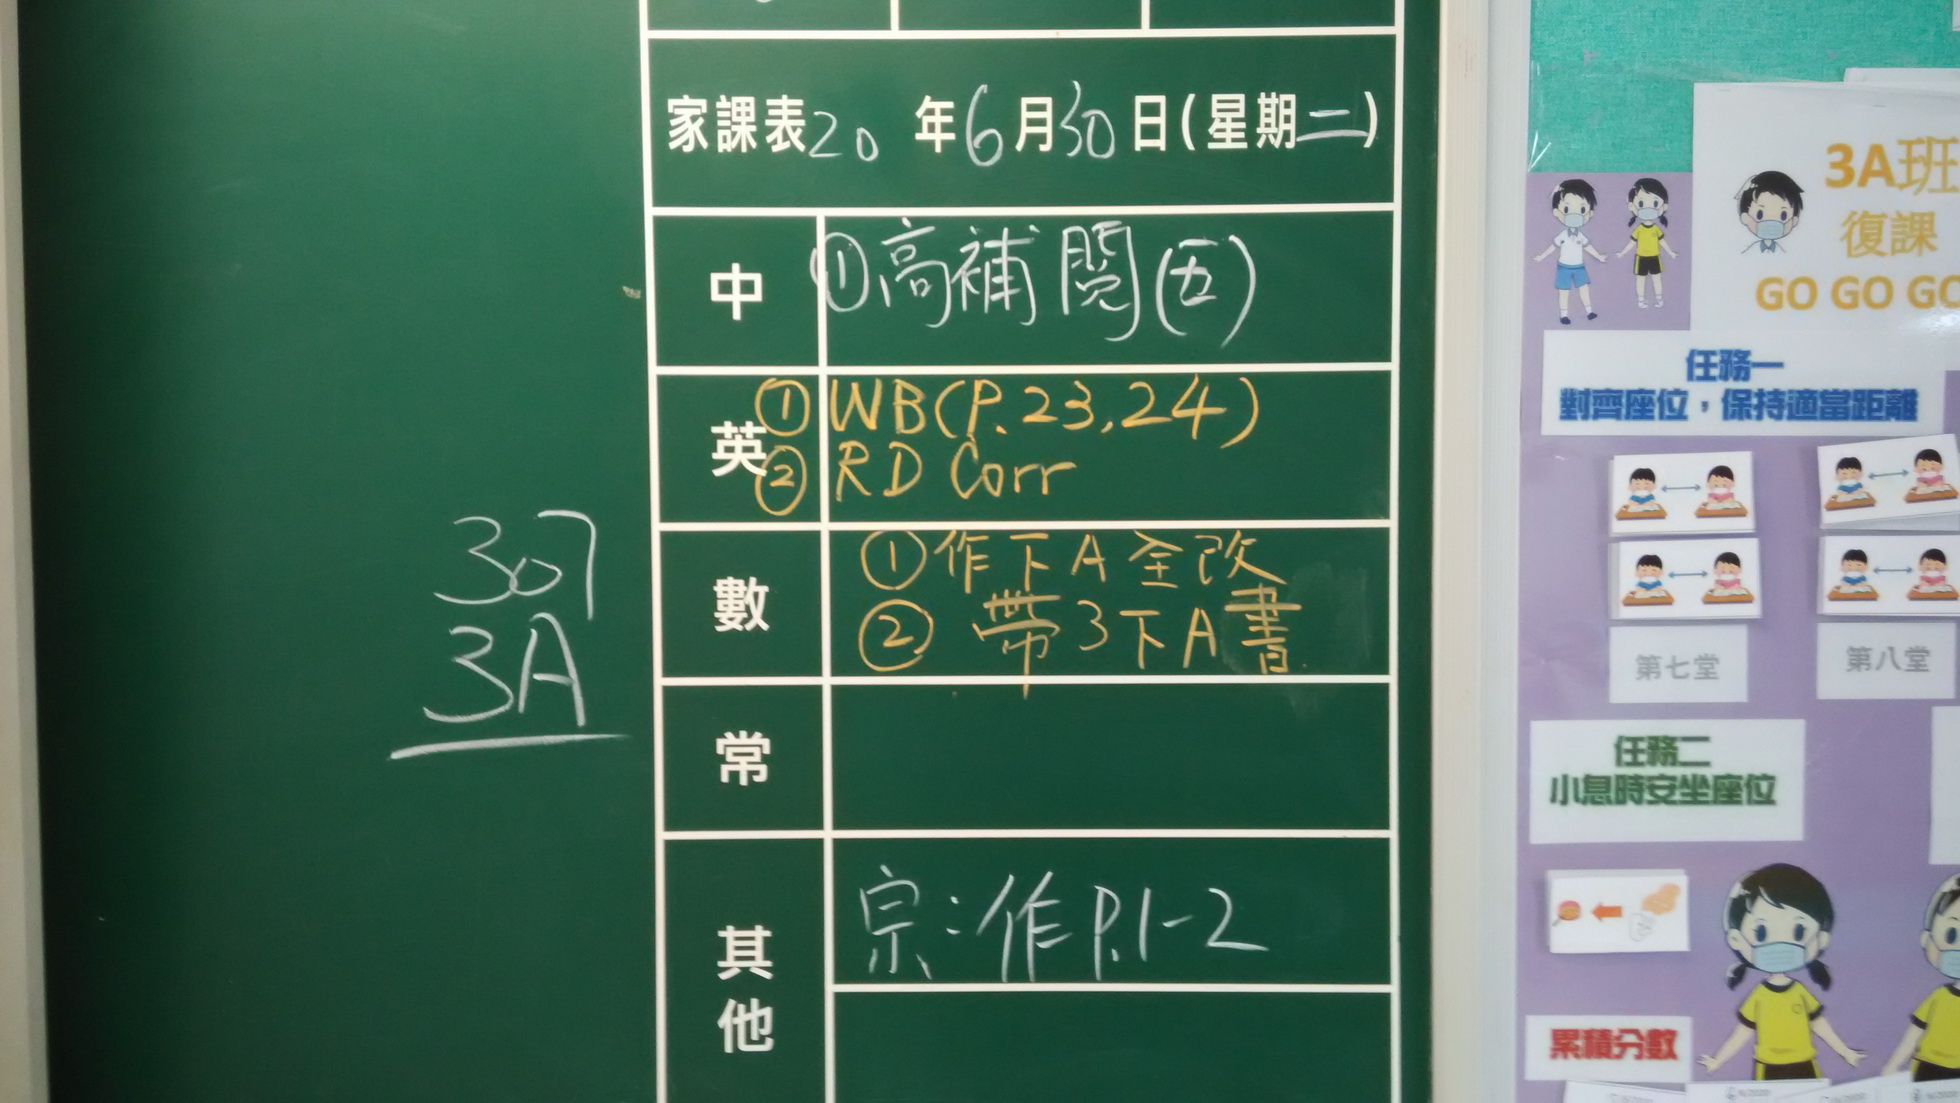 家課表20年6月30日(星期二)
中 ①高補閱(五)
英 ①WB(P.23,24)
②RD Corr
數 ①作下A全改
②帶3下A書
常
其他 宗:作P.1-2
307
3A
3A班
復課
GO GO GO
任務一
對齊座位，保持適當距離
第七堂
第八堂
任務二
小息時安坐座位
累積分數